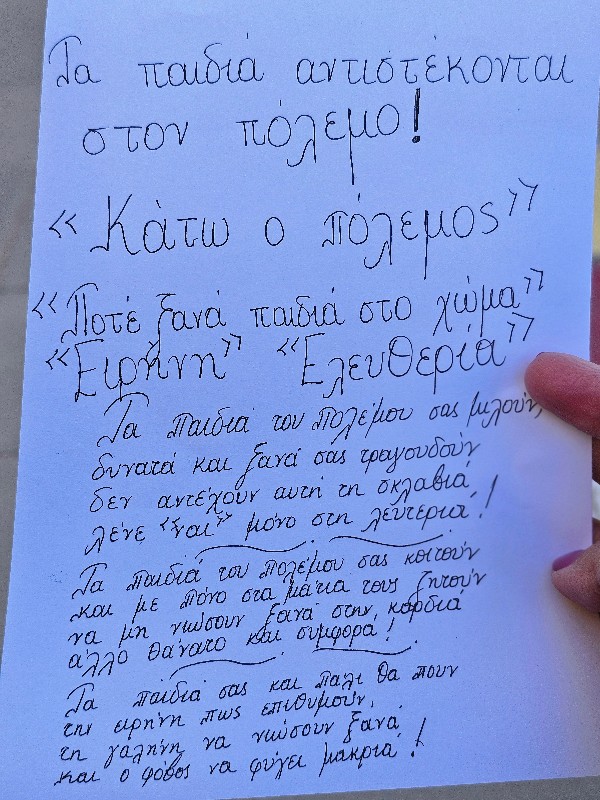 Τα παιδιά αντιστέκονται
στον πόλεμο!
«Κάτω ο πόλεμος»
«Ποτέ ξανά παιδιά στο χώμα»
«Ειρήνη» «Ελευθερία»
Τα παιδιά του πολέμου σας μιλούν,
δυνατά και ξανά σας τραγουδούν
δεν αντέχουν αυτή τη σκλαβιά
λένε «ναι» μόνο στη λευτεριά!
Τα παιδιά του πολέμου σας κοιτούν
και με πόνο στα μάτια τους ζητούν
να μη νιώσουν ξανά στην καρδιά
άλλο θάνατο και συμφορά!
Τα παιδιά σας και πάλι θα πουν
την ειρήνη πως επιθυμούν,
τη γαλήνη να νιώσουν ξανά
και ο φόβος να φύγει μακριά!